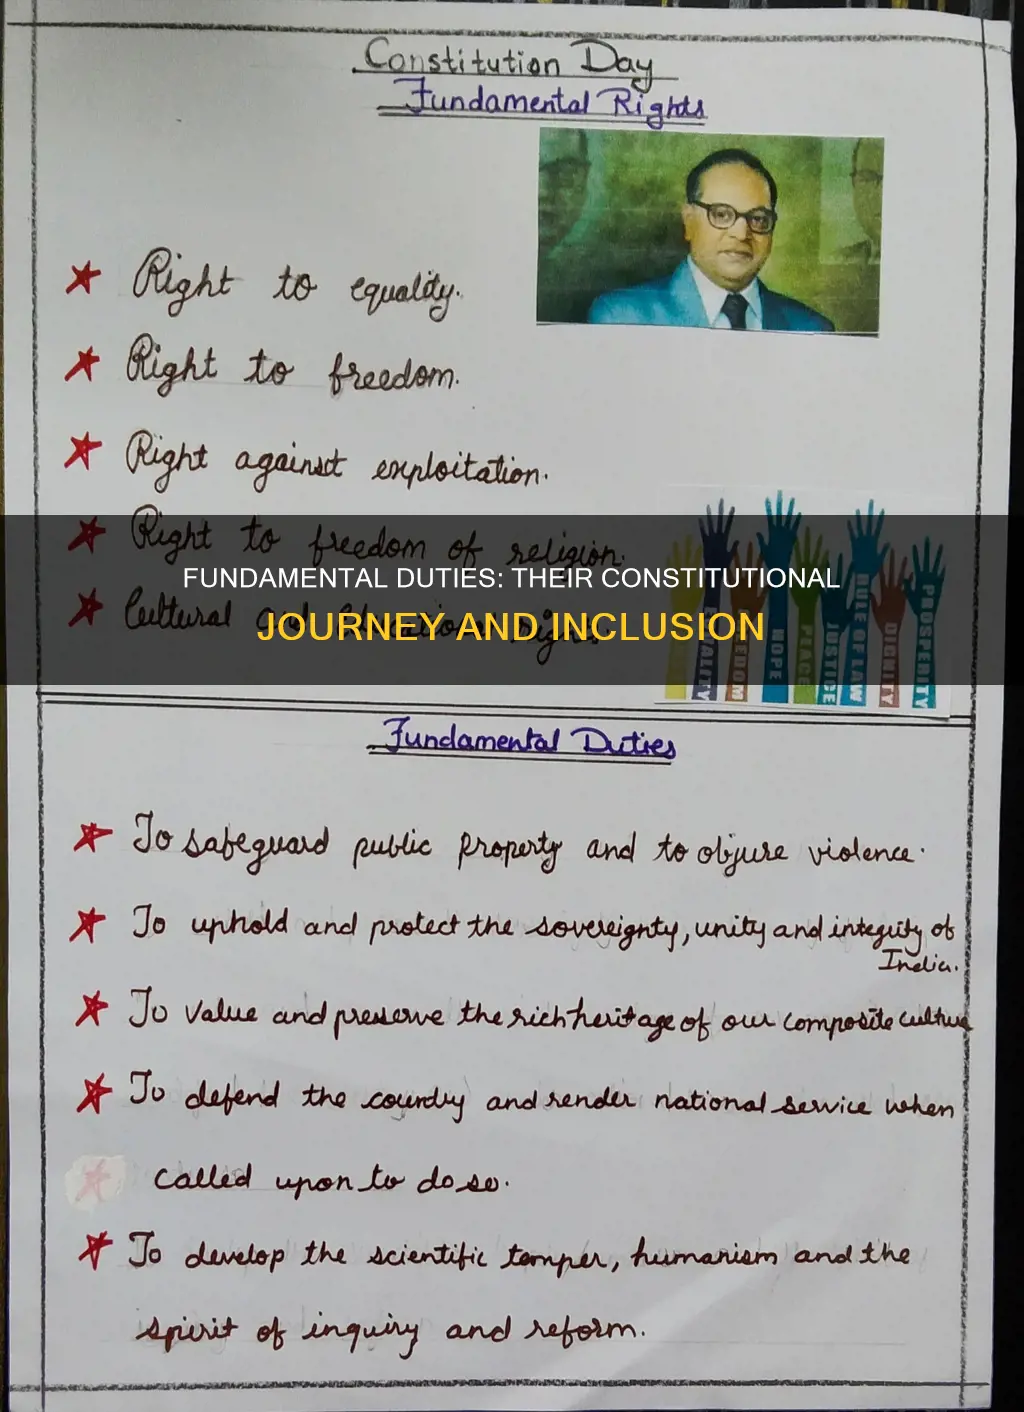 Constitution Day
Fundamental Rights
Right to equality.
Right to freedom.
Right against exploitation.
Right to freedom of religion.
FUNDAMENTAL DUTIES: THEIR CONSTITUTIONAL
Cultural
JOURNEY AND INCLUSION
HOPE
PEACE
JUSTICE
RULE OF LAW
DIGNITY
PROSPERITY
Fundamental Duties
To safeguard public property and to objure violence.
To uphold and protect the sovereignty, unity and integrity of
India.
To value and preserve the rich heritage of our composite culture
To defend the country and render national service when
called upon to do so.
To develop the scientific temper, humanism and the
spirit of inquiry and reform.